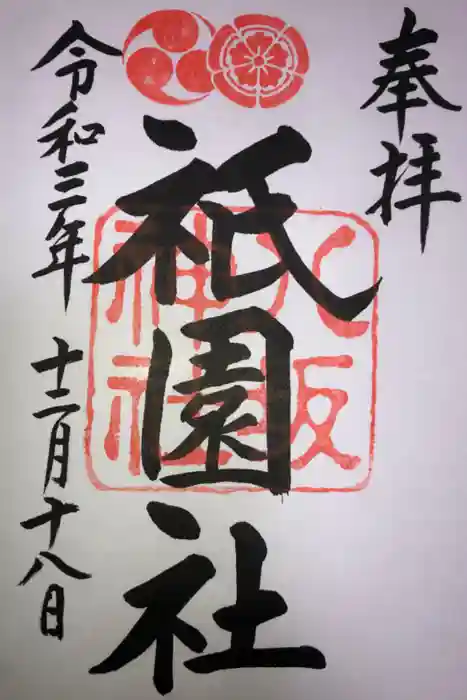 奉拝
祇園社
八坂
神社
令和三年 十二月十八日